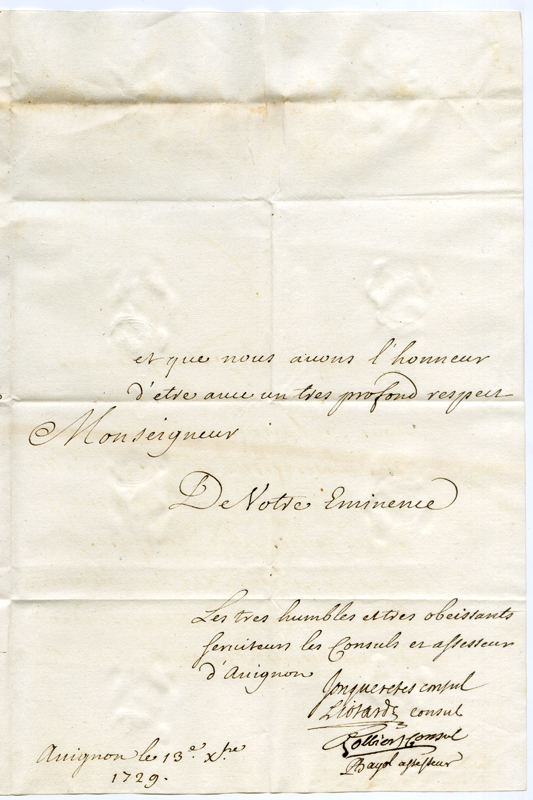 et que nous avons l'honneur
d'etre avec un tres profond respect
Monseigneur
De Votre Eminence
Les tres humbles et tres obeissants
serviteurs les Consuls et assesseur
d'Avignon
Jonqueretes consul
Liotard consul
Tollier consul
Bayol assesseur
Avignon le 13.e Xbre
1729.